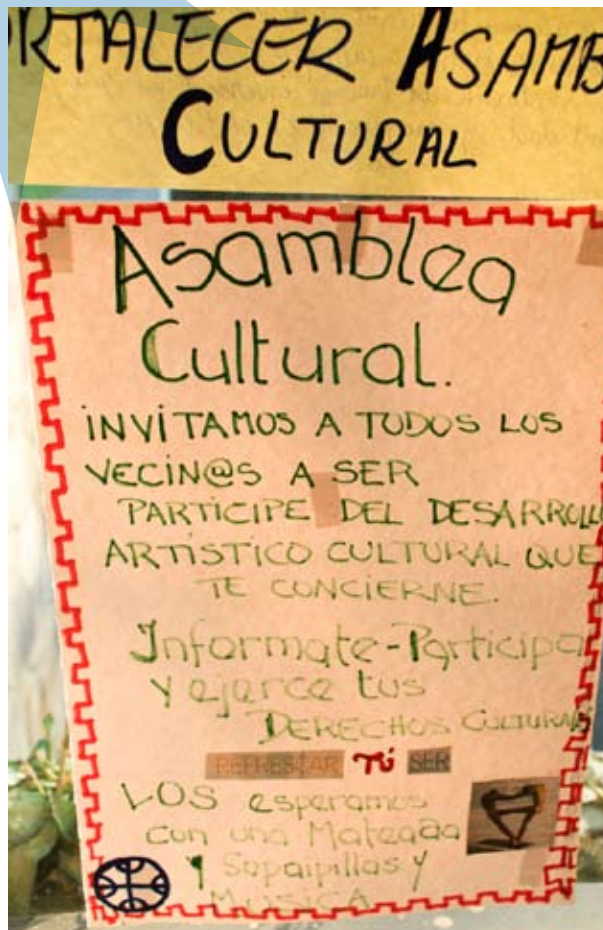 RTALECER ASAMB
CULTURAL
Asamblea
Cultural.
INVITAMOS A TODOS LOS
VECIN@S A SER
PARTICIPE DEL DESARROLLO
ARTÍSTICO CULTURAL QUE
TE CONCIERNE.
Informate-Participa
y ejerce tus
DERECHOS CULTURALES
REFRESCAR TÚ SER
LOS esperamos
con una Mateada
Y Sopaipillas y
MUSICA